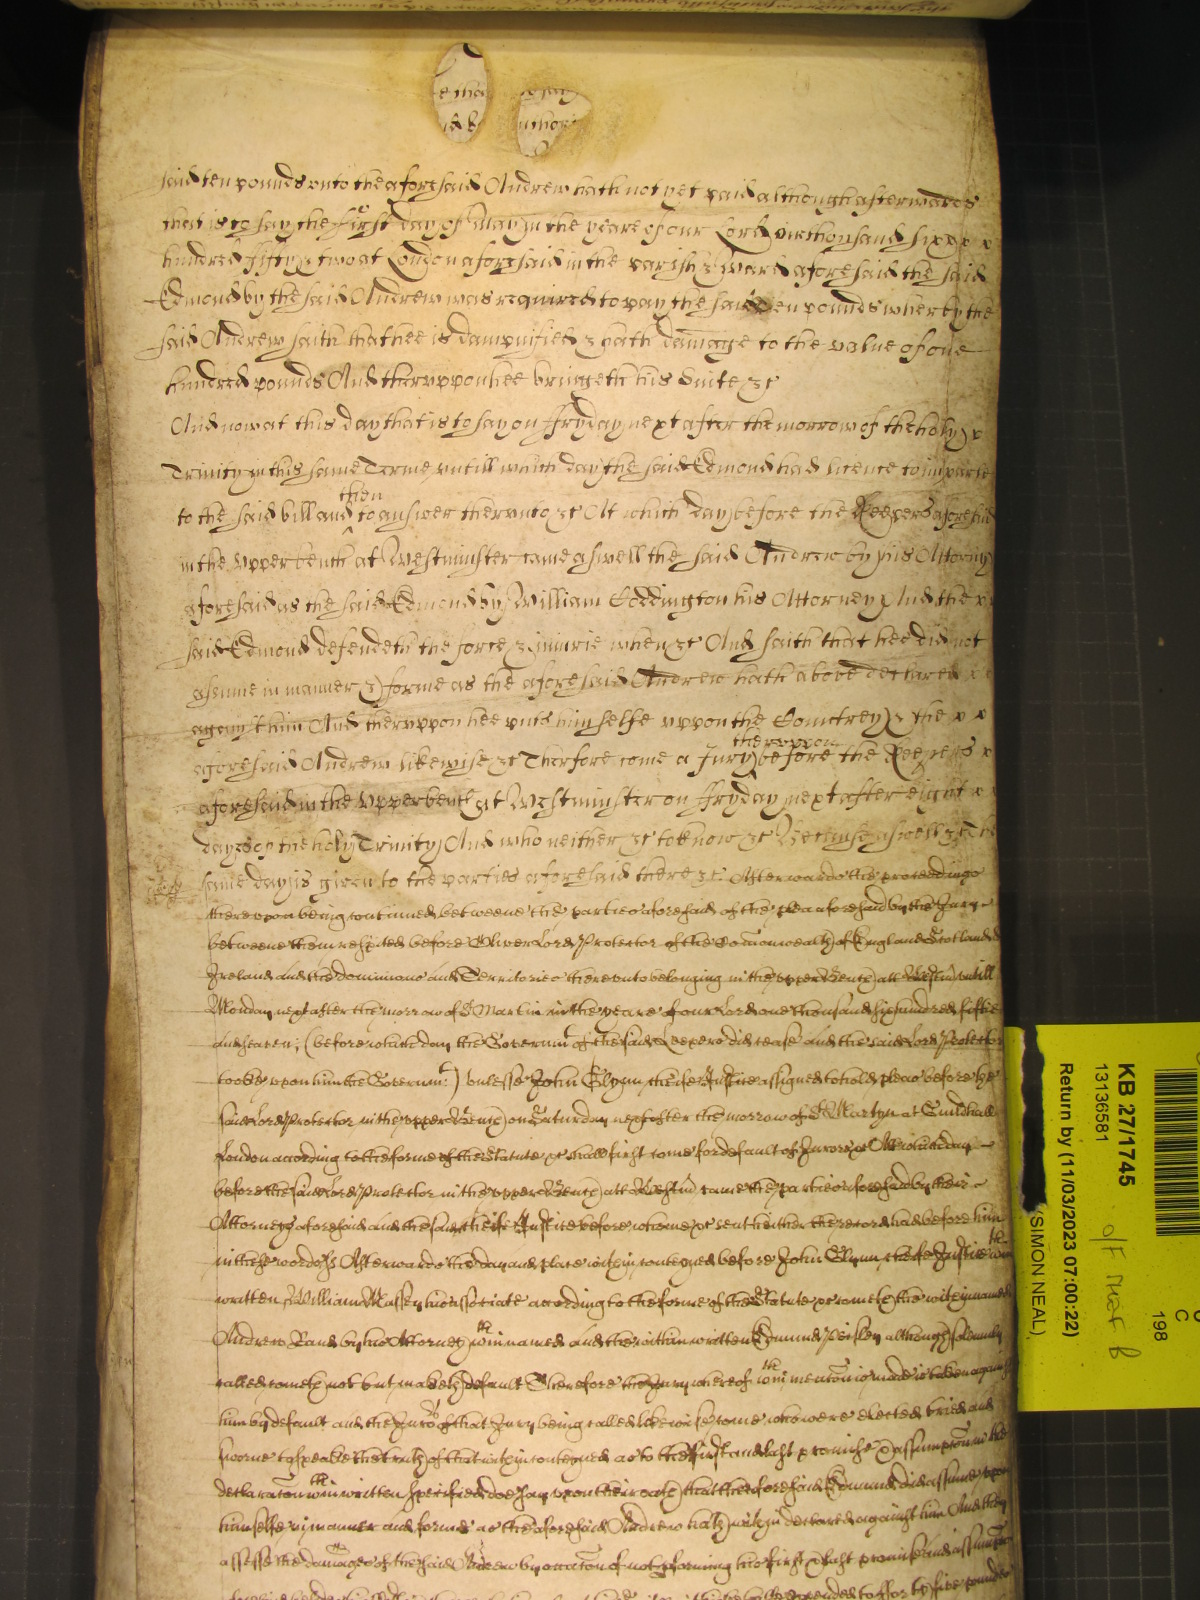 said ten pounds vnto the aforesaid Andrew hath not yet paid although afterwards
that is to say the first day of May in the yeare of our Lord one thousand six x x
hundred fifty & two at London aforesaid in the parish & Ward aforesaid the said
Edmond by the said Andrew was required to pay the said ten pounds wherby the
said Andrew saith that hee is dampnified & hath damage to the value of one
hundred pounds And thervppon hee bringeth his suite &c
And now at this day that is to say on ffryday next after the morrow of the holy x
Trinity in this same Terme vntill which day the said Edmond had licence to imparle
to the said bill and then to answer thervnto &c At which day before the Keepers aforesaid
in the vpper bench at Westminster came aswell the said Andrew by his Attorny
aforesaid as the said Edmond by William Coddington his Attorney And the x
said Edmond defendeth the force & iniurie when &c And saith that hee did not
assume in manner & forme as the aforesaid Andrew hath above declared x
against him And thervppon hee puts himselfe vppon the Countrey & the x x
aforesaid Andrew likewise &c Therfore come a Jury thervppon before the Keepers x
aforesaid in the vpper bench at Westminster on ffryday next after eight x
dayes of the holy Trinity And who neither &c to know &c Because aswell &c The
same day is given to the parties aforesaid there &c. Afterwards the proceedings
therevpon being continued betweene the parties aforesaid of the plea aforesaid by the Jury
betweene them respited before Oliver Lord Protector of the Comonwealth of England Scotland &
Ireland and the dominions and Territories therevnto belonging in the vpper Bench att Westm vntill
Monday next after the morrow of St Martin in the yeare of our Lord one thousand six hundred fiftie
and seaven, (before which day the Governmt of the said Keepers did cease and the said Lord Protector
tooke vpon him the Governmt) vnlesse John Glynn cheife Justice assigned to hold pleas before the
said Lord Protector in the vpper Bench on Saturday next after the morrow of St Martyn at Guildhall
London according to the forme of the Statute &c shall first come for default of Jurors &c At which day
before the said Lord Protector in the vpper Bench att Westm came the parties aforesaid by their
Attorneys aforesaid and the said cheife Justice before whome &c sent hither the record had before him
in these words ss Afterwards the day and place within conteyned before John Glynn cheife Justice wthin
written, William Massey his associate according to the forme of the Statute &c cometh the within named
Andrew Rand by his Attorney wthin named and the within written Edmund Peisley although solemnly
called cometh not but maketh default Therefore the Jury whereof wthin mencon is made is taken against
him by default and the Juro's of that Jury being called likewise come who were elected tried and
sworne to speake the truth of that within conteyned as to the first and last promise & assumption in the
declaracon wthin written specified doe say vpon their oath that the aforesaid Edmund did assume vpon
himselfe in manner and forme as the aforesaid Andrew hath within declared against him And they
assesse the damages of the said Andrew by occacon of not pforming his first & last promise and assumption
KB 27/1745
13136581
Return by (11/03/2023 07:00:22)
(SIMON NEAL),
198
C